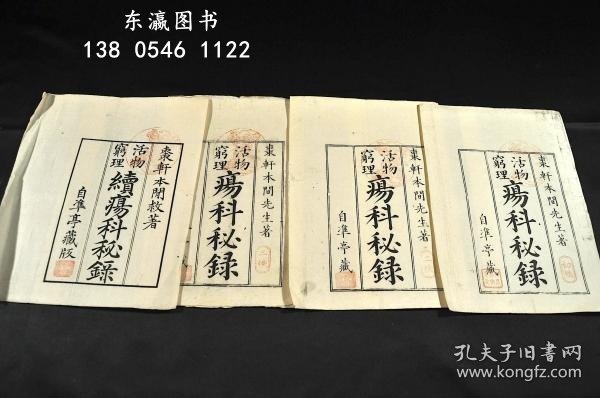 东瀛图书
138 0546 1122
棗軒本間救著
活物
窮理
續瘍科秘錄
自準亭藏版
活物
窮理
瘍科秘録
棗軒本間先生著
活物
窮理
瘍科秘録
自準亭藏
棗軒本間先生著
活物
窮理
瘍科秘録
自準亭藏
孔夫子旧书网
www.kongfz.com